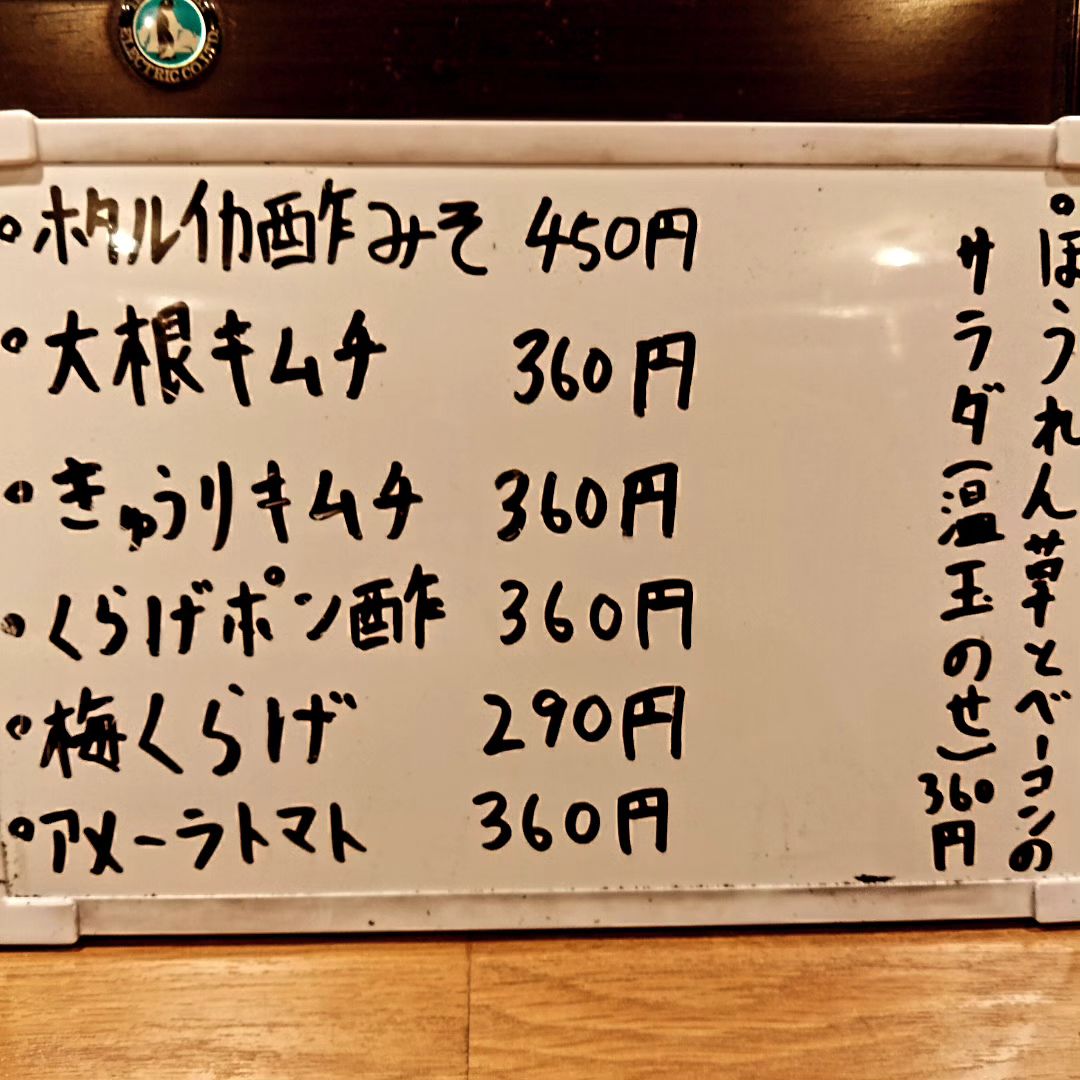 ELECTRIC CO.LTD.
◦ホタルイカ酢みそ 450円
◦大根キムチ 360円
◦きゅうりキムチ 360円
◦くらげポン酢 360円
◦梅くらげ 290円
◦アメーラトマト 360円
◦ほうれん草とベーコンの
サラダ(温玉のせ)360円